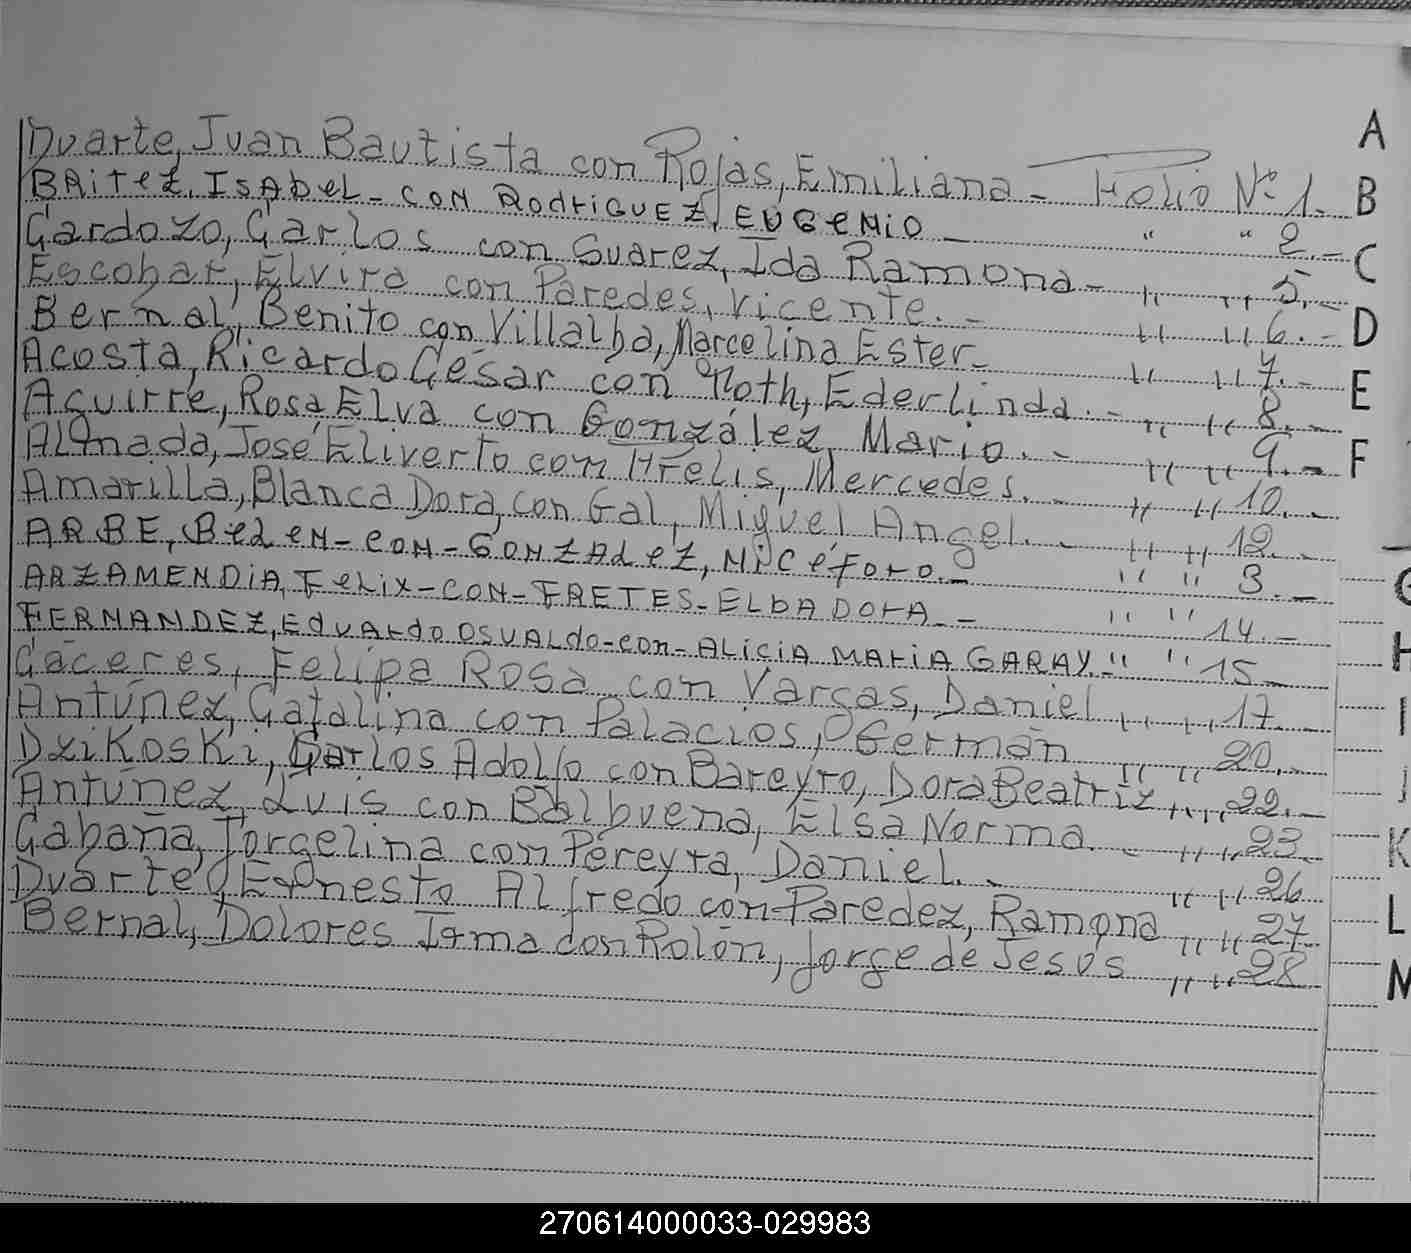 Duarte, Juan Bautista con Rojas, Emiliana - Folio Nº 1.-
BAITEZ, ISABEL - CON RODRIGUEZ, EUGENIO - " " 2.-
Cardozo, Carlos con Suarez, Ida Ramona - " " 5.-
Escobar, Elvira con Paredes, Vicente. - " " 6.-
Bernal, Benito con Villalba, Marcelina Ester - " " 7.-
Acosta, Ricardo César con Noth, Ederlinda. - " " 8.-
Aguirre, Rosa Elva con González, Mario. - " " 9.-
Almada, José Eliverto con Frelis, Mercedes. - " " 10.-
Amarilla, Blanca Dora, con Gal, Miguel Angel. - " " 12.-
ARBE, BELEN - CON - GONZALEZ, NICÉFORO. - " " 3.-
ARZAMENDIA, FELIX - CON - FRETES - ELBA DORA. - " " 14.-
FERNANDEZ, EDUARDO OSVALDO - con - ALICIA MARIA GARAY. " " 15.-
Cáceres, Felipa Rosa con Vargas, Daniel " " 17.-
Antúnez, Catalina con Palacios, Germán " " 20.-
Dzikoski, Carlos Adolfo con Bareyro, Dora Beatriz " " 22.-
Antúnez, Luis con Balbuena, Elsa Norma. - " " 23.-
Cabaña, Jorgelina con Pereyra, Daniel. - " " 26
Duarte, Ernesto Alfredo con Paredez, Ramona " " 27.-
Bernal, Dolores Irma con Rolón, Jorge de Jesús " " 28
A
B
C
D
E
F
G
H
I
J
K
L
M
270614000033-029983